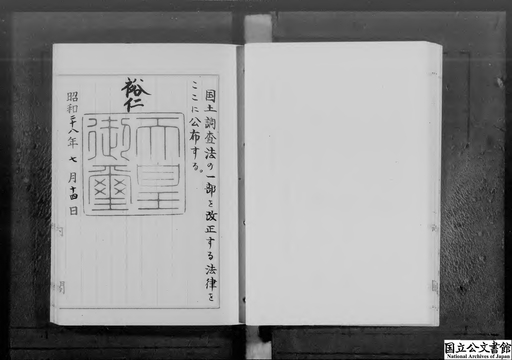 国土調査法の一部を改正する法律を
ここに公布する。
裕仁
天皇
御璽
昭和二十八年七月十四日
国立公文書館
National Archives of Japan